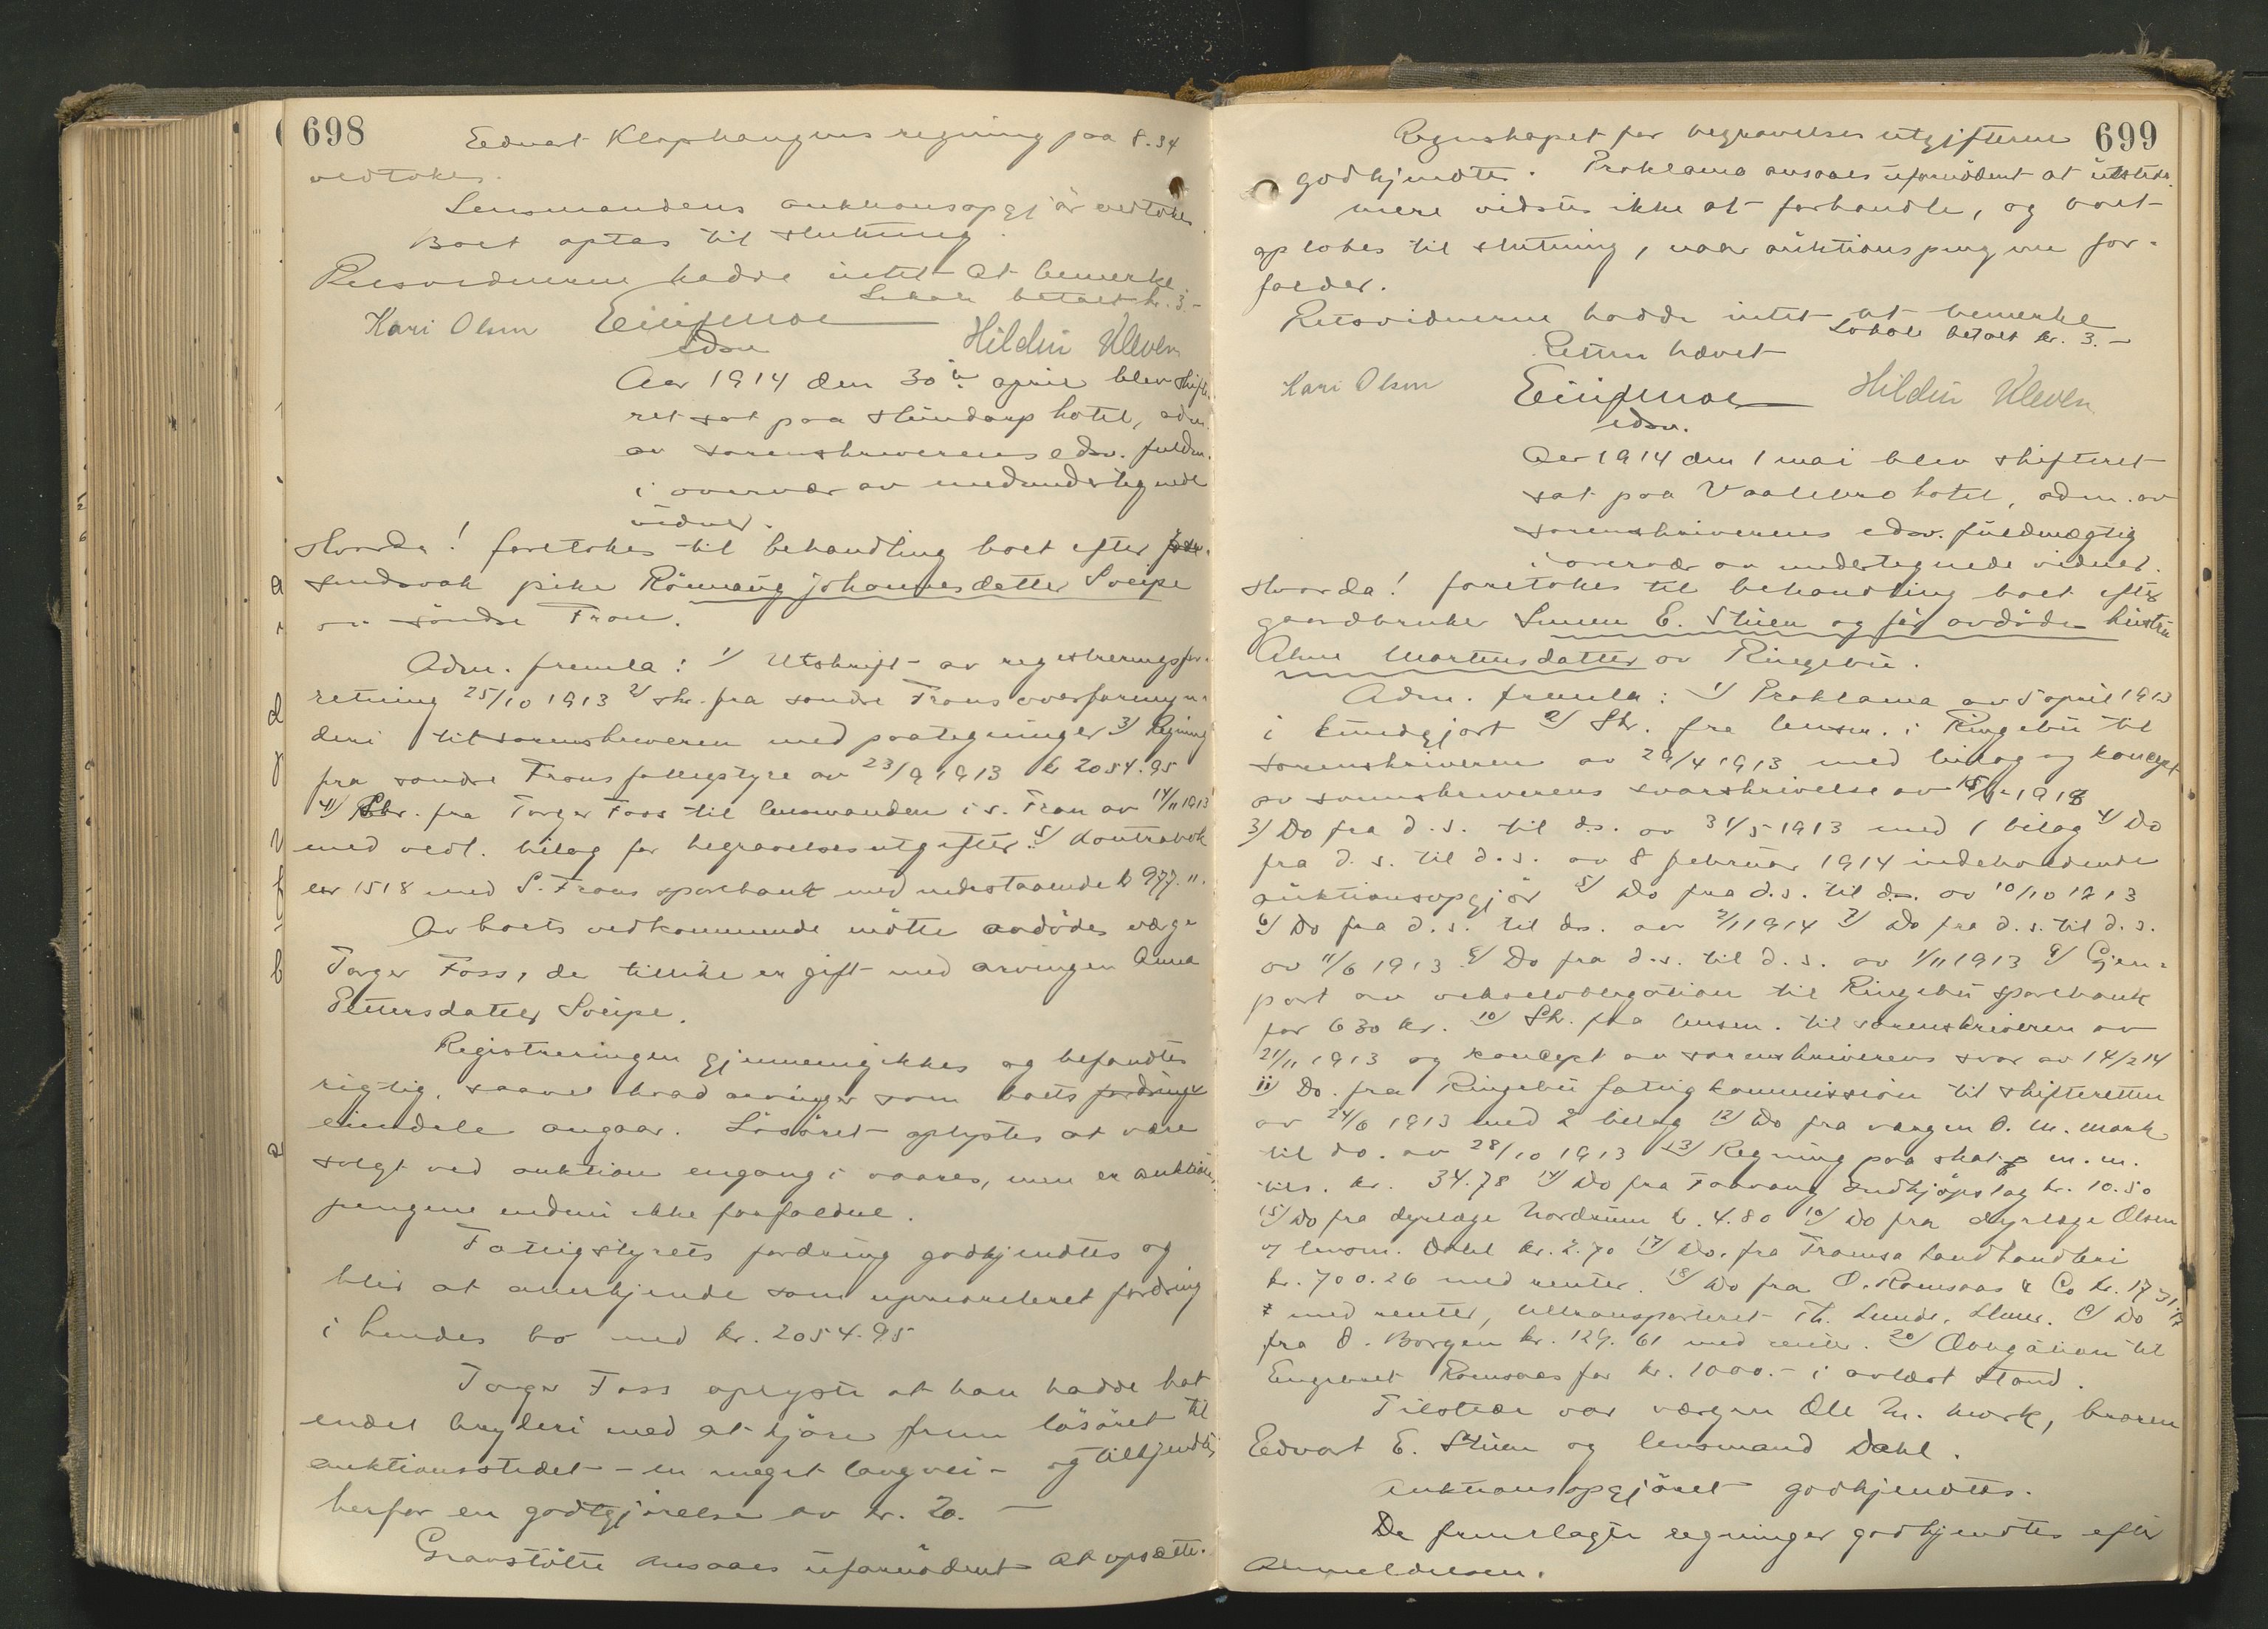 698
Edvat Klophaugens regning paa 8.34
vedtokes.
Lensmandens auktionsopgjör vedtokes
Boet optas til slutning.
Retsvidnerne hadde intet at bemerke
Lokale betalt kr. 3.-
Kari Olsen Hildur Kleven
edsv
Aar 1914 den 30te april blev skifte
ret sat paa Hundorp hotel, adm.
av sorenskriverens edsv. fuldm.
i overvær av medundertegnede
vidner.
Hvorda! foretokes til behandling boet efter
sindsvak pike Rönnaug Johannesdatter Sveipe
av söndre Fron.
Adm. fremla: 1/ Utskrift av registreringsfor-
retning 25/10 1913 2/ skr. fra söndre Frons overformyn-
deri til sorenskriveren med paategninger 3/ Regning
fra söndre Frons fattigstyre av 23/9 1913 kr 2054.95
4/ Skr. fra Torger Foss til lensmanden i s. Fron av 14/11 1913
med vedl. bilag for begravelsesutgifter. 5/ Kontrabok
1518 med S. Frons sparebank med indestaaende kr 977.11.
Av boets vedkommende mötte avdödes verge
Torger Foss, der tillike er gift med arvingen Anna
Pettersdatter Sveipe.
Registreringen gjennemgikkes og befandtes
rigtig, saavel hvad arvinger som boets fordringer
eiendele angaar. Lösöret oplystes at være
solgt ved auktion engang i vaares, men er auktions
pengene endnu ikke forfaldne.
Fattigstyrets fordring godkjendtes og
blir at anerkjende som uprioriteret fordring
i hendes bo med kr. 2054.95
Torger Foss oplyste at han hadde hat
endel bryderi med at kjöre frem lösöret til
auktionsstedet - en meget lang vei - og tilkjendtes
herfor en godtgjörelse av kr. 20. -
Gravstötte ansaaes uforn­ödent at opsætte.
699
Regnskapet for begravelsesutgifterne
godkjendtes. Proklama ansaaes ufornödent at utstede.
mere vidstes ikke at forhandle, og boet
optokes til slutning, naar auktionspengene for-
falder.
Retsvidnerne hadde intet at bemerke
Lokale betalt kr. 3.-
Retten hævet
Kari Olsen Hildur Kleven
edsv.
Aar 1914 den 1 mai blev skifteret
sat paa Vaalebro hotel, adm. av
sorenskriverens edsv. fuldmægtig
i overvær av undertegnede vidner.
Hvorda! foretokes til behandling boet efter
gaardbruker Simen E. Stuen og för avdöde hustru
Ahne Martensdatter av Ringebu.
Adm. fremla: 1/ Proklama av 5 april 1913
i kundgjort 2/ Skr. fra lensm. i Ringebu til
sorenskriveren av 29/4 1913 med bilag og koncept
av sorenskriverens svarskrivelse av
3/ Do fra d.s. til d.s. av 31/5 1913 med 1 bilag 4/ Do
fra d.s. til d.s. av 8 februar 1914 indeholdende
auktionsopgjör 5/ Do fra d.s. til d.s. av 10/10 1913
6/ Do fra d.s. til d.s. av 2/1 1914 7/ Do fra d.s. til d.s.
av 11/6 1913 8/ Do fra d.s. til d.s. av 1/11 1913 9/ Gjen-
part av vekselobligation til Ringebu sparebank
for 630 kr. 10/ Skr. fra lensm. til sorenskriveren av
21/11 1913 og koncept av sorenskriverens svar av 14/2 14
11/ Do. fra Ringebu fattigkommission til skifteretten
av 24/6 1913 med 2 bilag 12/ Do fra vergen O. M. Mork
til do. av 28/10 1913 13/ Regning paa skat m.m.
tils. kr. 34.78 14/ Do fra Faavang Indkjöpslag kr. 10.50
15/ Do fra dyrlæge Nordrum kr. 4.80 16/ Do fra dyrlæge Olsen
og lensm. Dahl kr. 2.70 17/ Do. fra Tromsa Landhandleri
kr. 700.26 med renter. 18/ Do fra O. Ramsaas & Co kr. 1731.17
med renter, transporteret Th. Lunde, Lhmr. 19/ Do
fra O. Borgen kr. 129.61 med renter. 20/ Obligation til
Engebret Ramsaas for kr. 1000.- i avlæst stand.
Tilstede var vergen Ole M. Mork, broren
Edvart E. Stuen og lensmand Dahl.
Auktionsopgjöret godkjendtes.
De fremlagte regninger godkjendtes efter
anmeldelsen.